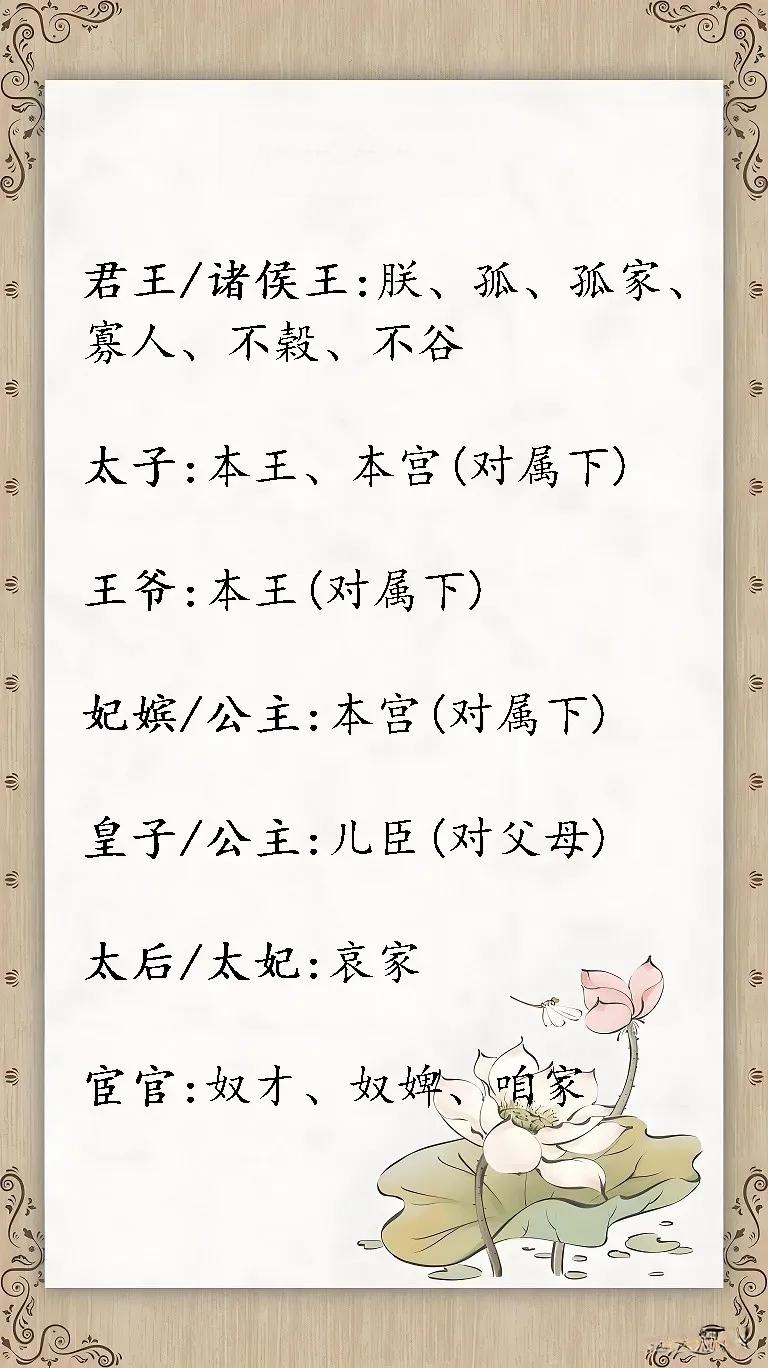 君王/诸侯王:朕、孤、孤家、
寡人、不榖、不谷
太子:本王、本宫(对属下)
王爷:本王(对属下)
妃嫔/公主:本宫(对属下)
皇子/公主:儿臣(对父母)
太后/太妃:哀家
宦官:奴才、奴婢、咱家